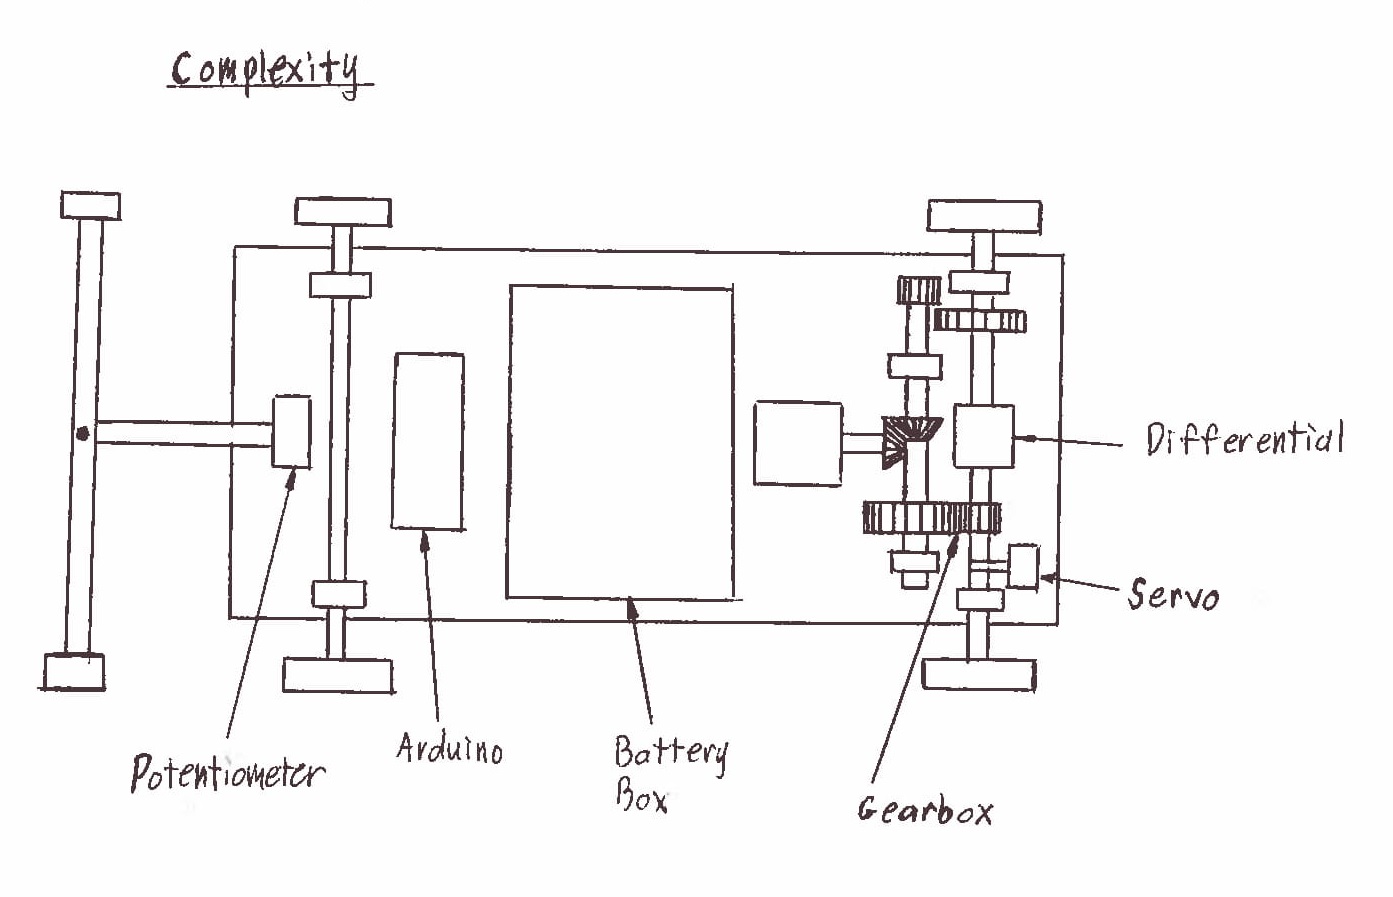 Complexity
Differential
Servo
Potentiometer
Arduino
Battery
Box
Gearbox